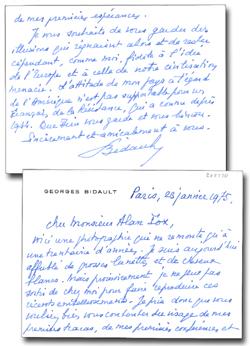 de mes premières espérances.
Je vous souhaite de vous garder des
illusions qui régnaient alors et de rester
cependant, comme moi, fidèle à l'idée
de l'Europe et à celle de notre civilisation
menacée. L'attitude de mon pays à l'égard
de l'Amérique n'est pas supportable pour un
Français, de la Résistance, qui a connu depuis
1944. Que Dieu vous garde et vous bénisse.
Sincèrement et amicalement à vous.
Bidault
GEORGES BIDAULT
Paris, 23 janvier 1975
Cher Monsieur Alan Fox,
Voici une photographie qui ne remonte qu'à
une trentaine d'années. Je suis aujourd'hui
affublé de grosses lunettes et de cheveux
blancs. Mais provisoirement je ne puis pas
sortir de chez moi pour faire reproduire ces
récents enrichissements. Je prie donc que vous
vouliez bien vous contenter du visage de mes
premiers travaux, de mes premières conférences et